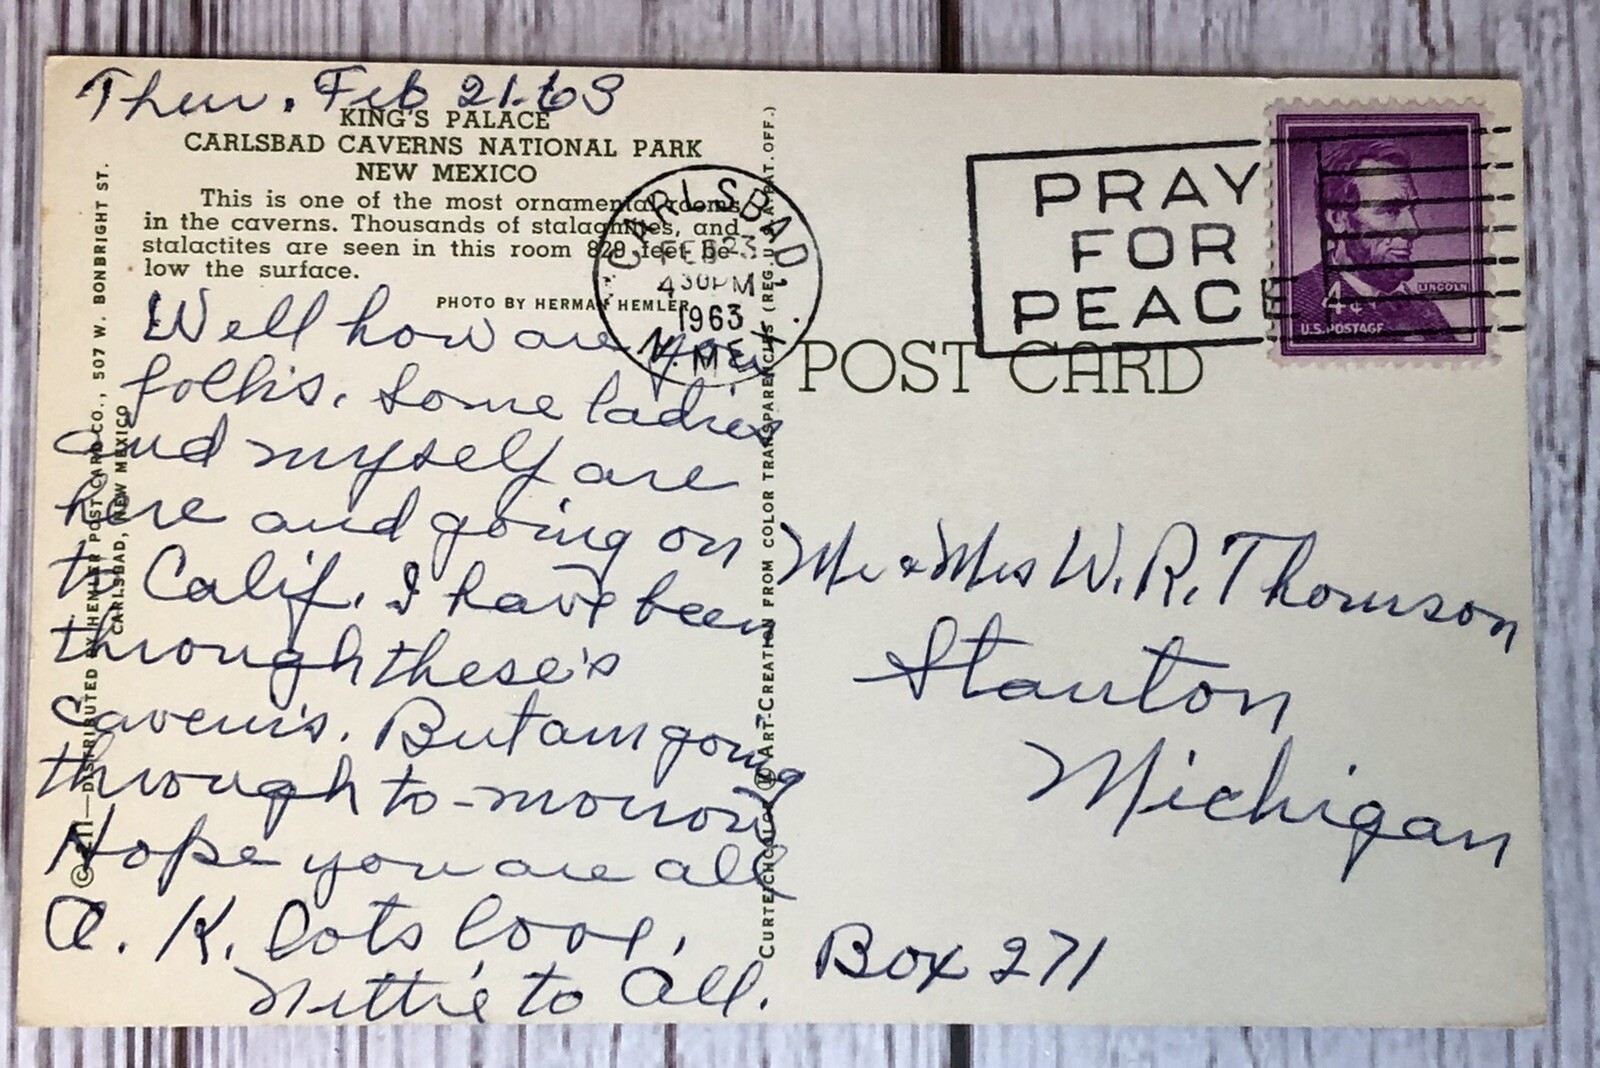 Thur. Feb 21-63
KING'S PALACE
CARLSBAD CAVERNS NATIONAL PARK
NEW MEXICO
This is one of the most ornamental rooms
in the caverns. Thousands of stalagmites, and
stalactites are seen in this room 829 feet be-
low the surface.
PHOTO BY HERMAN HEMLER
Well how are you
folks. Some ladies
and myself are
here and going on
to Calif. I have been
through these's
Cavern's. But am going
through to-morrow
Hope you are all
O. K. Lots love,
Nettie to All.
DISTRIBUTED BY HEMLER POST CARD CO., 507 W. BONBRIGHT ST.
CARLSBAD, NEW MEXICO
CURTEICHCOLOR ® ART-CREATION FROM COLOR TRANSPARENCIES (REG. U.S.A. PAT. OFF.)
CARLSBAD
FEB 23
4 30 PM
1963
N. MEX
PRAY
FOR
PEACE
4¢
LINCOLN
U.S. POSTAGE
POST CARD
Mr & Mrs W. R. Thomson
Stanton
Michigan
Box 271